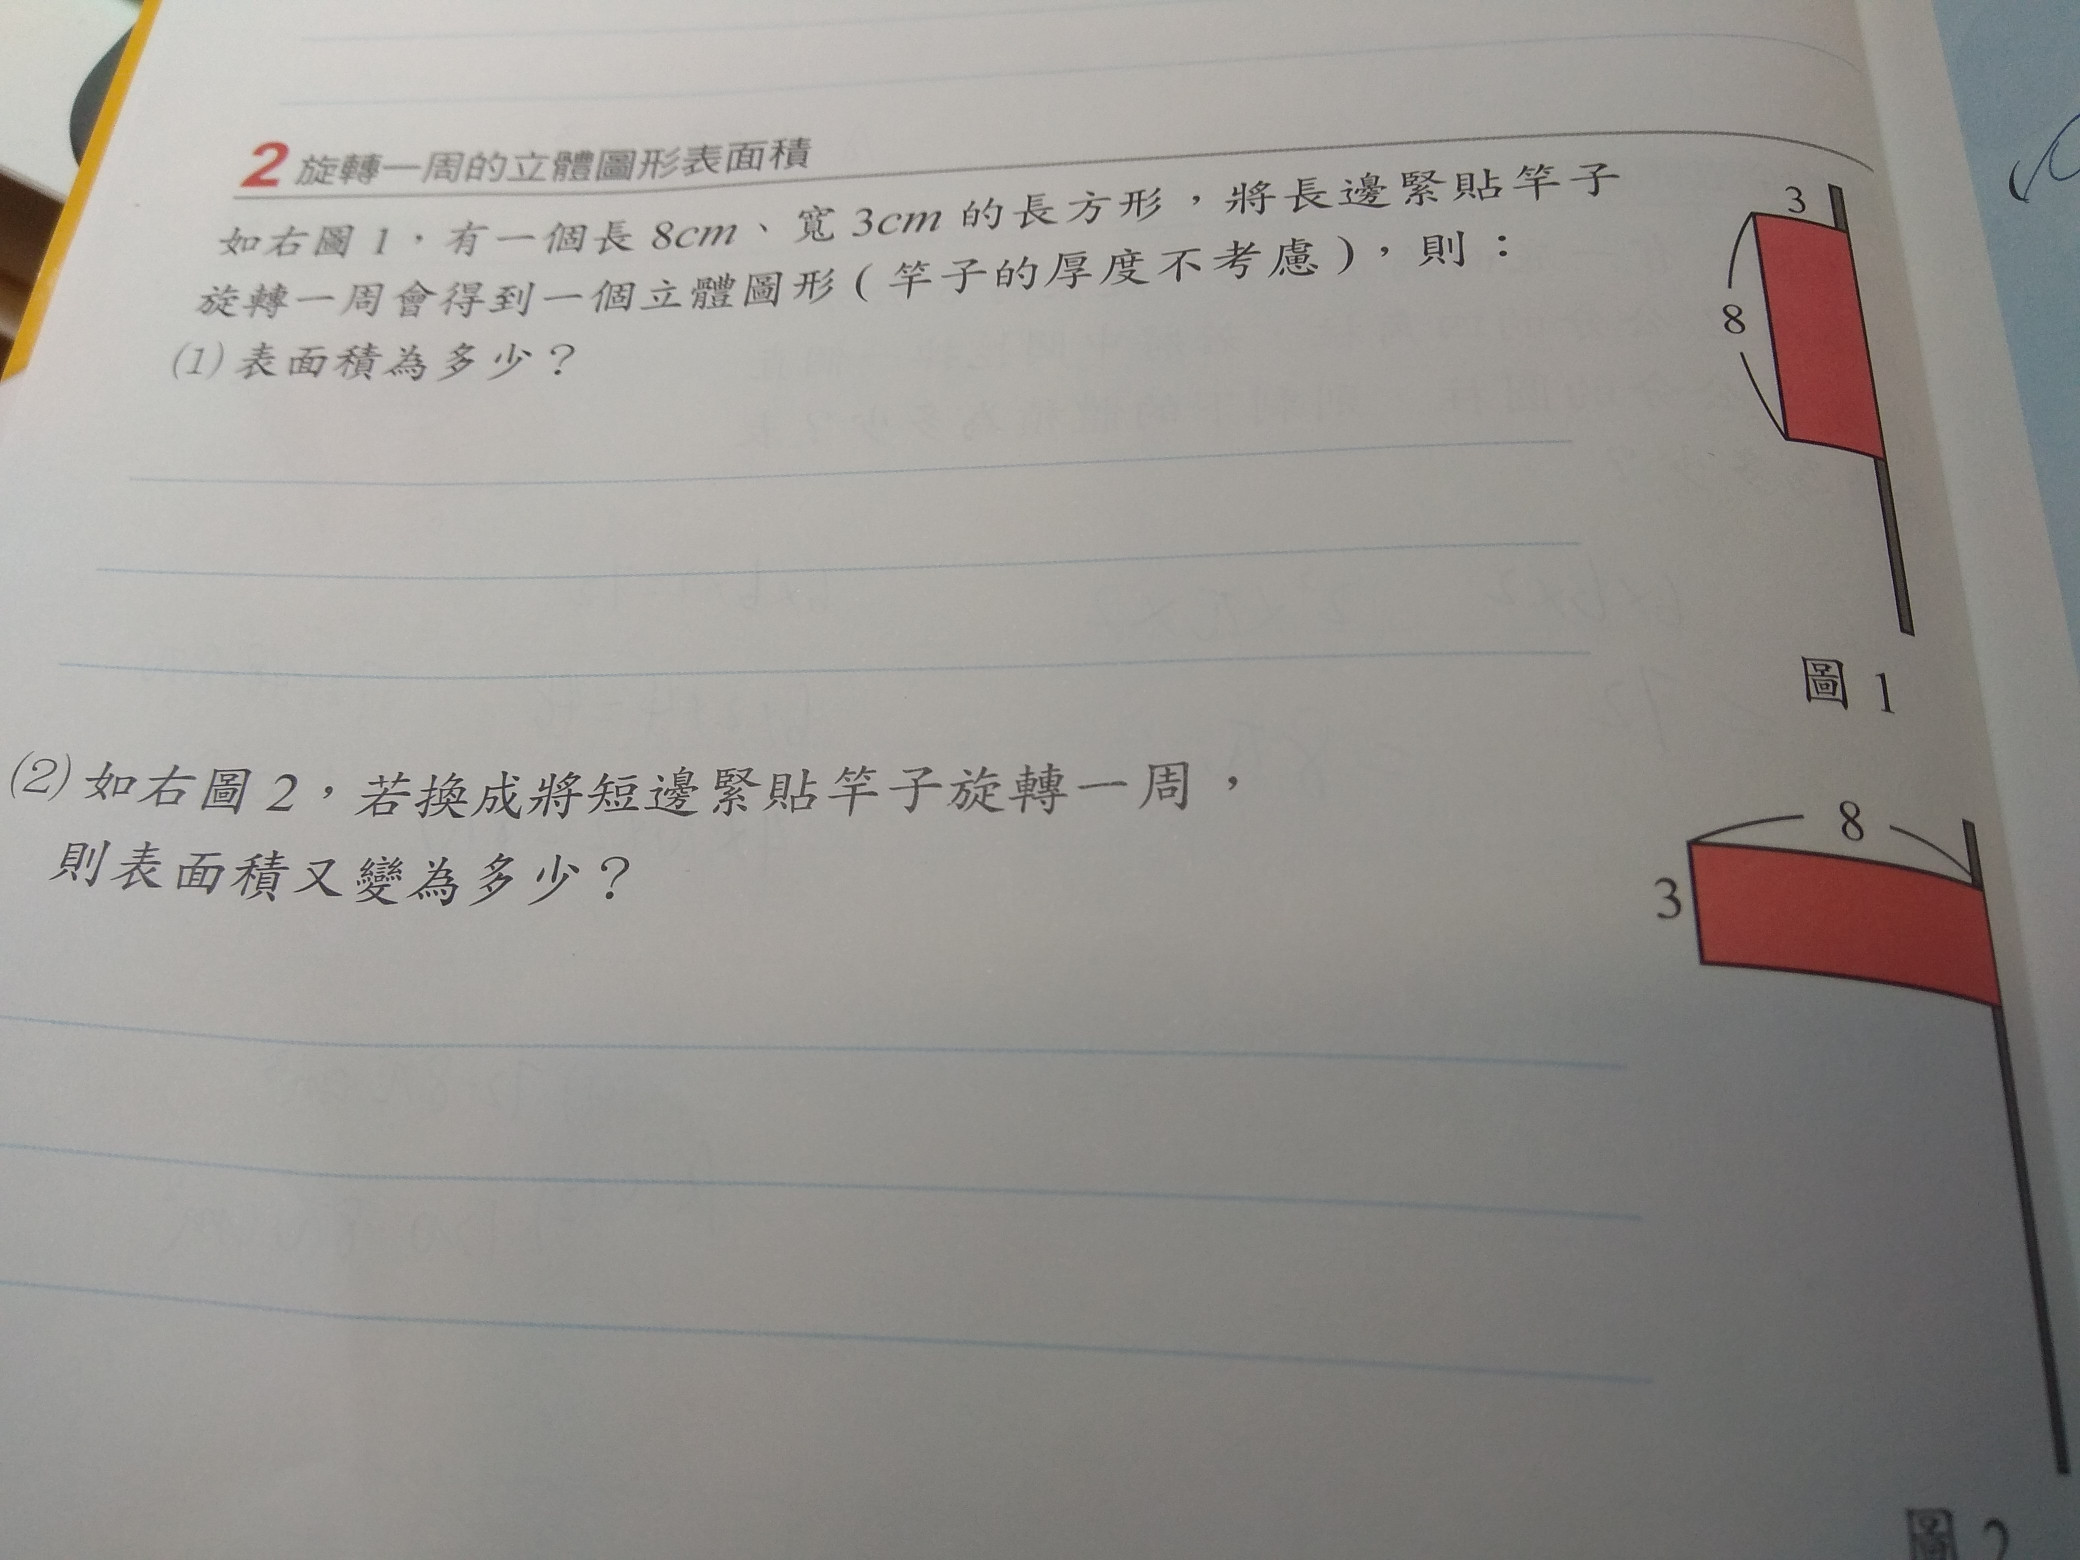 2 旋轉一周的立體圖形表面積
如右圖 1，有一個長 8cm、寬 3cm 的長方形，將長邊緊貼竿子
旋轉一周會得到一個立體圖形（竿子的厚度不考慮），則：
(1) 表面積為多少？
3
8
圖 1
(2) 如右圖 2，若換成將短邊緊貼竿子旋轉一周，
則表面積又變為多少？
8
3
圖 2